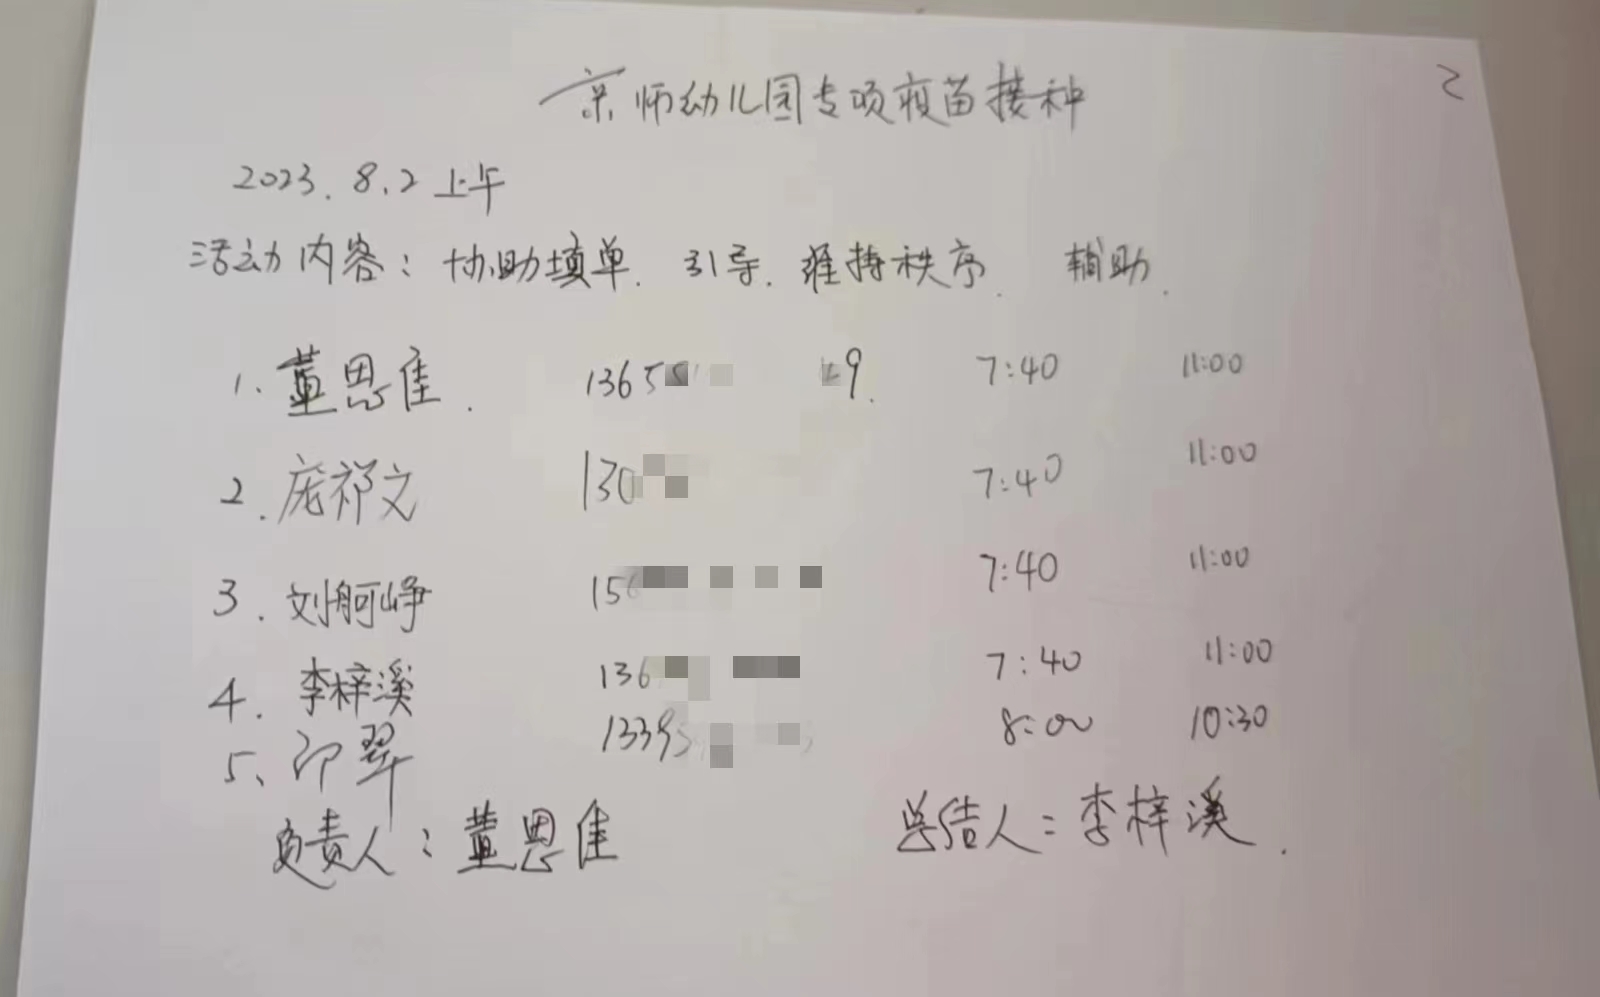 京师幼儿园专项疫苗接种 2
2023.8.2 上午
活动内容：协助填单、引导、维持秩序、辅助.
1、董恩佳. 1365 9. 7:40 11:00
2.庞祁文 130 7:40 11:00
3.刘舸峥 15 7:40 11:00
4.李梓溪 136 7:40 11:00
5、邝翠 1339 8:00 10:30
负责人：董恩佳 总结人：李梓溪.